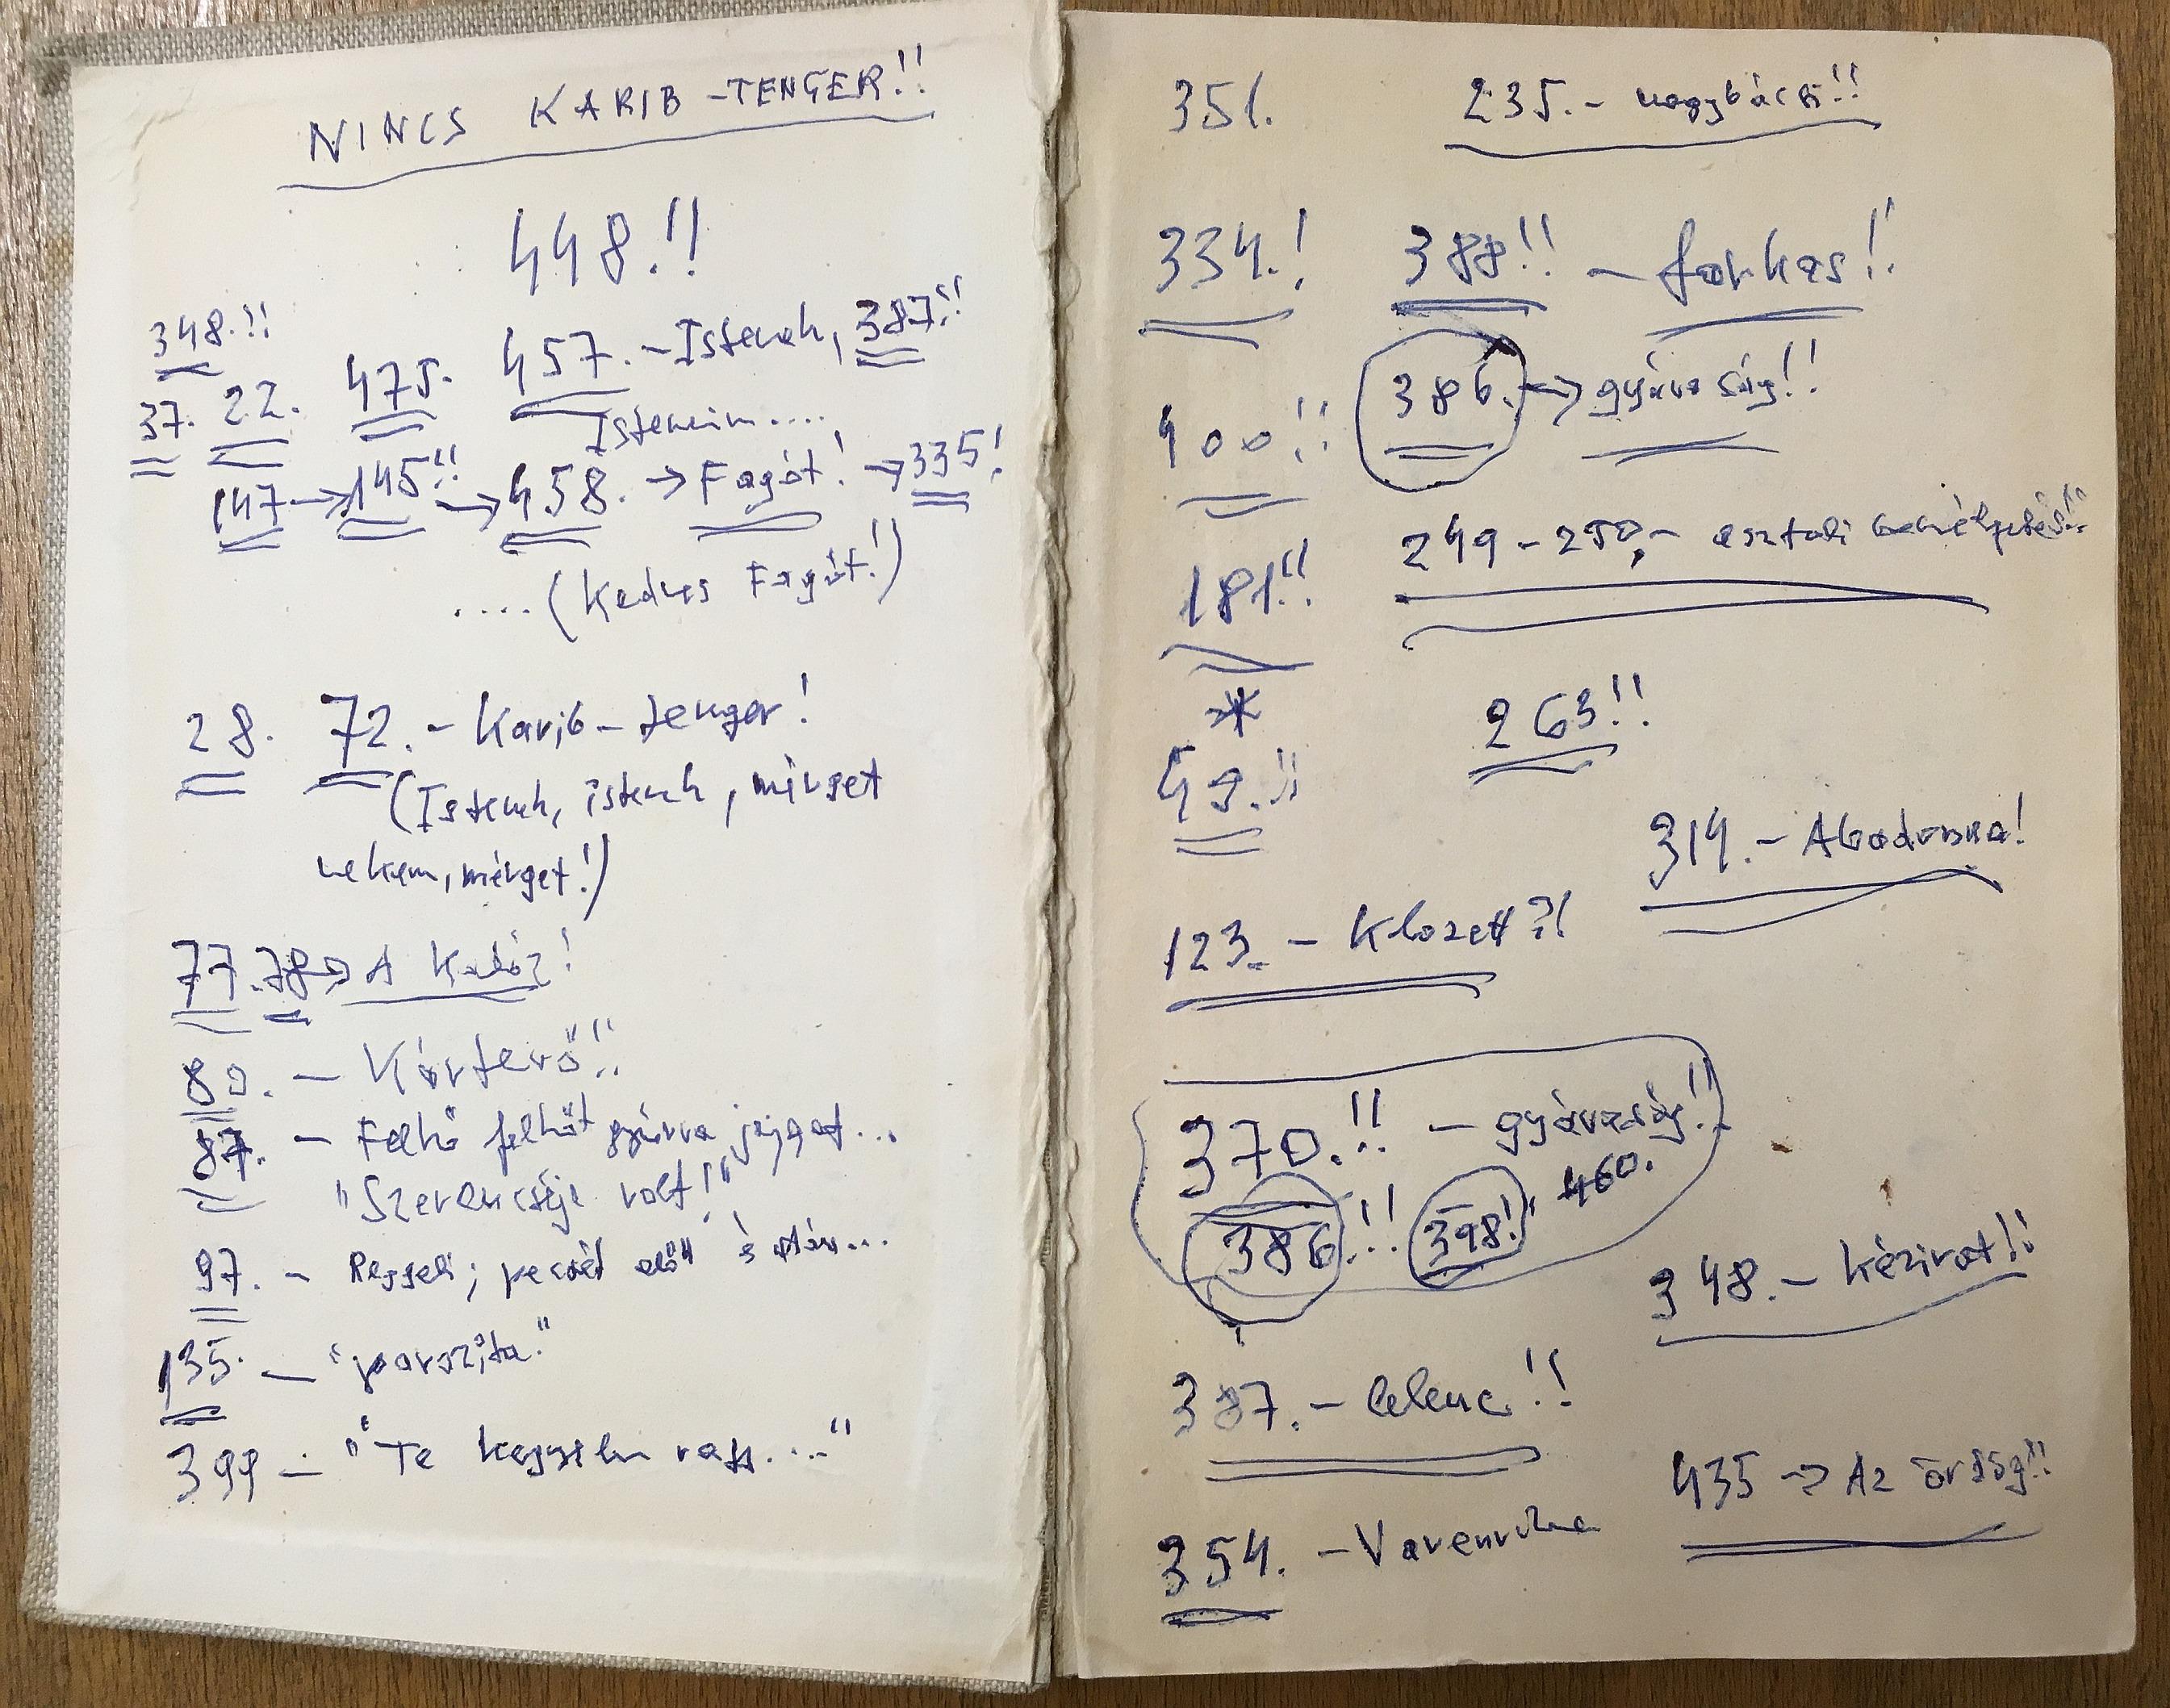 NINCS KARIB-TENGER!!
448.!!
348.!!
37. 22. 475. 457. - Istenek, 387!!
Isteneim....
147 → 145!! → 458. → Fagót! → 335!
....(Kedves Fagót!)
28. 72. - Karib-tenger!
(Istenek, istenek, mérget
nekem, mérget!)
77. 78 → A Kalóz!
80. - Körterő!!
87. - Felhő felhőt gyúrva jajgat...
"Szerencséje volt!"
97. - Reggeli; előtt és után...
135. - "parazita."
399 - "Te kegyetlen vagy...."
351. 235. - nagybácsi!!
334.! 388!! - farkas!!
400!! 386. → gyávaság!!
181!! 249-250, - asztali beszélgetés!!
*
49.!! 263!!
314. - Abadonna!
123. - Klozett?!
370.!! - gyávaság!!
386.!! 398!! 460.
348. - kézirat!!
387. - lelenc!!
435 → Az ördög!!
354. - Varenuha